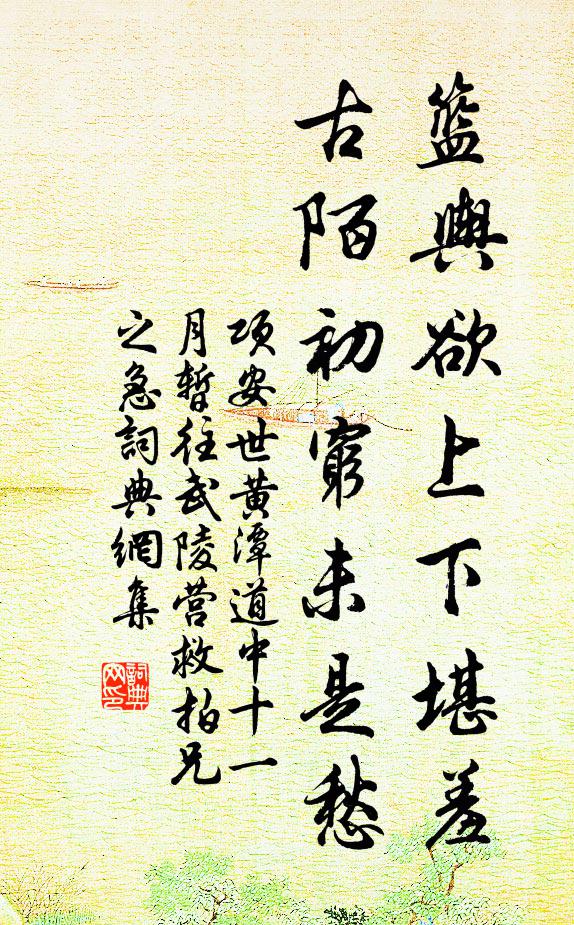 籃輿欲上下堪羞
古陌初窮未是愁
項安世黄潭道中十一
月暫往武陵营救拍兄
之急詞典網集
詞典
网印